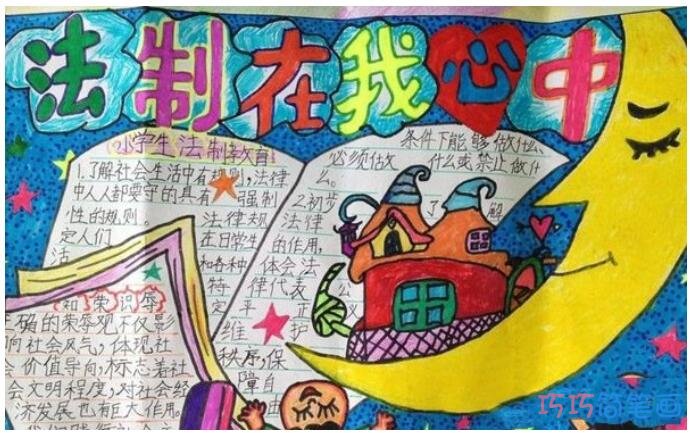 法制在我心中
(小学生法制教育)
1.了解社会生活中有规则,法律
中人人都要守的具有强制
性的规则。法律规
定人们在日常生
活和各种
特定
条件下能够做什么、
必须做什么或禁止做什
么。
2.初步了解
法律
的作用,
体会法
律代表公
平正义
维护
秩序,保
障自
由
知荣识辱
正确的荣辱观不仅影
向社会风气,体现社
会价值导向,标志着社
会文明程度,对社会经
济发展也有巨大作用。
巧巧简笔画